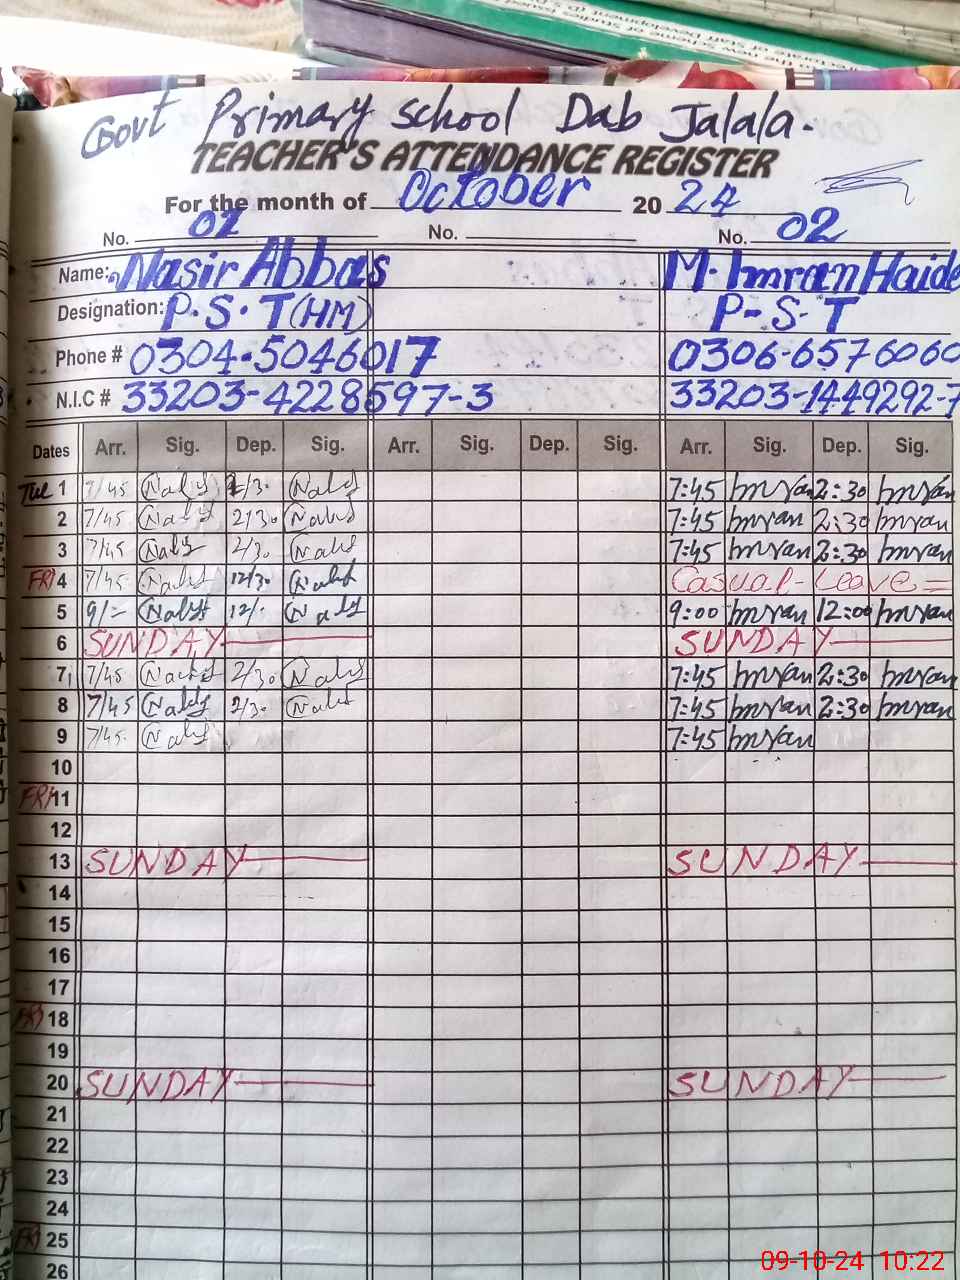 new Scheme of Studies issued
Directorate of Staff Development
Govt Primary School Dab Jalala.
TEACHER'S ATTENDANCE REGISTER
For the month of October 2024
No. 01 No. No. 02
Name: Nasir Abbas M. Imran Haide
Designation: P.S.T(HM) P-S-T
Phone # 0304-5046017 0306-6576060
N.I.C # 33203-4228597-3 33203-1449292-7
Dates Arr. Sig. Dep. Sig. Arr. Sig. Dep. Sig. Arr. Sig. Dep. Sig.
Tue 1 7/45 2/30 7:45 Imran 2:30 Imran
2 7/45 2/30 7:45 Imran 2:30 Imran
3 7/45 2/30 7:45 Imran 2:30 Imran
FRI 4 7/45 12/30 Casual-Leave=
5 9/- 12/. 9:00 Imran 12:00 Imran
6 SUNDAY SUNDAY
7 7/45 2/30 7:45 Imran 2:30 Imran
8 7/45 2/30 7:45 Imran 2:30 Imran
9 7/45 7:45 Imran
10
FRI 11
12
13 SUNDAY SUNDAY
14
15
16
17
FRI 18
19
20 SUNDAY SUNDAY
21
22
23
24
FRI 25
26
09-10-24 10:22